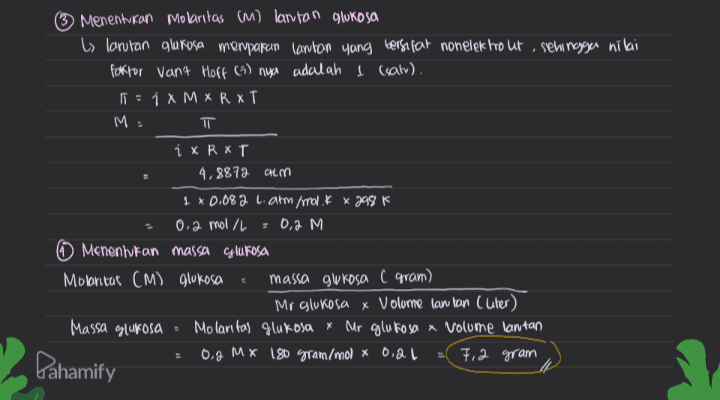 ③ Menentukan Molaritas (M) larutan glukosa
↳ larutan glukosa merupakan larutan yang bersifat nonelektrolit, sehingga nilai
faktor Van't Hoff (i) nya adalah 1 (satu).
π = i x M x R x T
M = π
i x R x T
= 4,8872 atm
1 x 0,082 L.atm/mol.K x 298 K
= 0,2 mol/L = 0,2 M
④ Menentukan massa glukosa
Molaritas (M) glukosa = massa glukosa (gram)
Mr glukosa x Volume larutan (Liter)
Massa glukosa = Molaritas glukosa x Mr glukosa x Volume larutan
= 0,2 M x 180 gram/mol x 0,2 L = 7,2 gram //
Pahamify